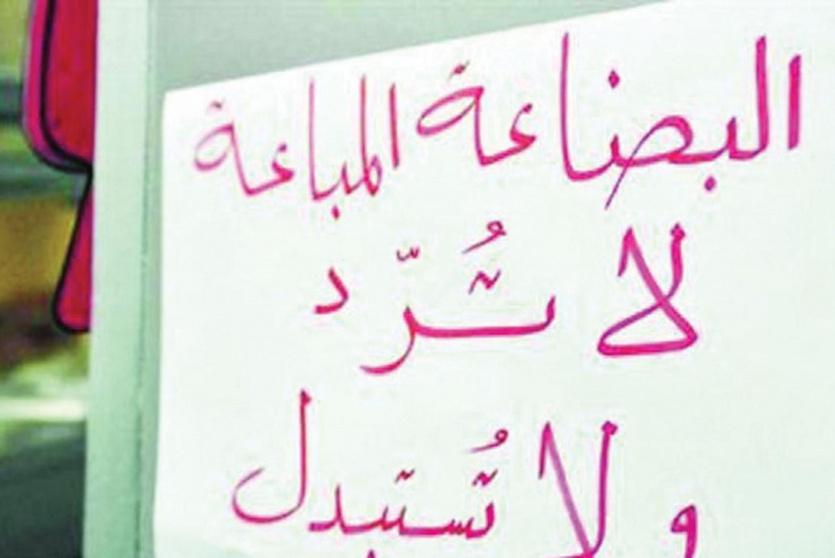 البضاعة المباعة
لا تُرّد
و لا تُستبدل